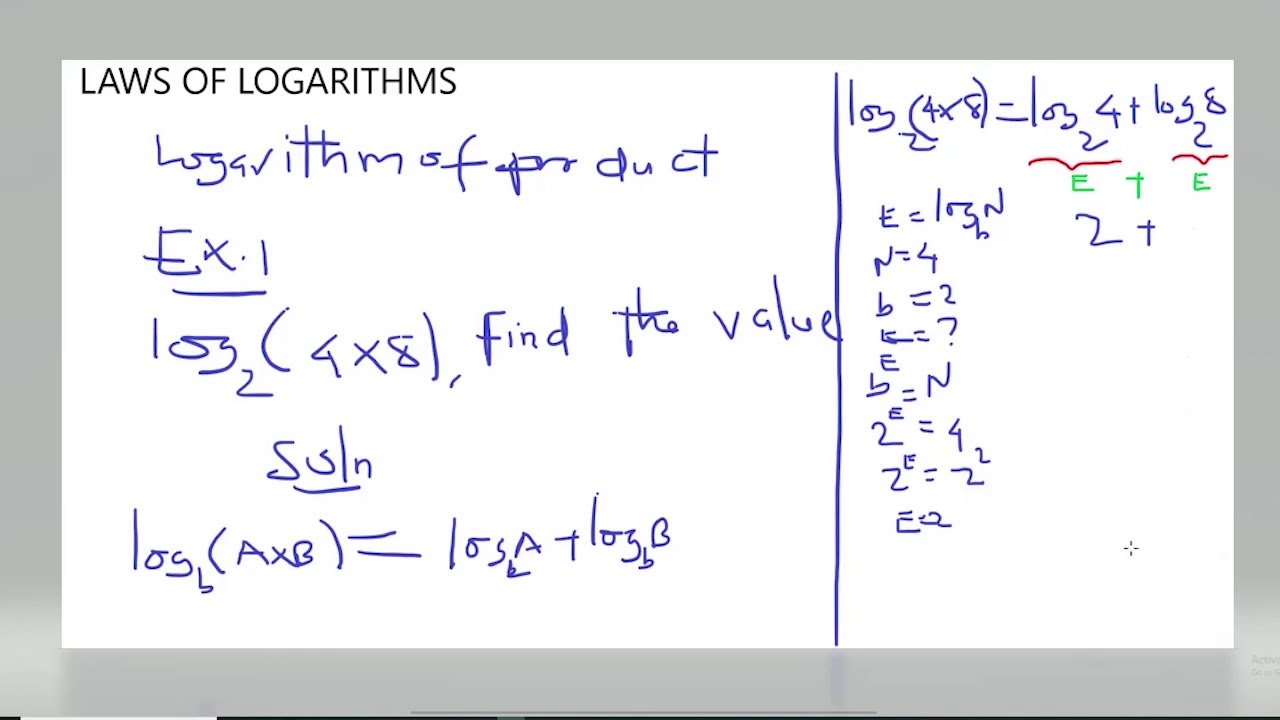 LAWS OF LOGARITHMS
Logarithm of product
Ex.1
log₂(4×8), find the value
Soln
log_b(A×B) = log_b A + log_b B
log₂(4×8) = log₂4 + log₂8
E + E
2 +
E = log_b N
N = 4
b = 2
E = ?
b^E = N
2^E = 4
2^E = 2²
E=2